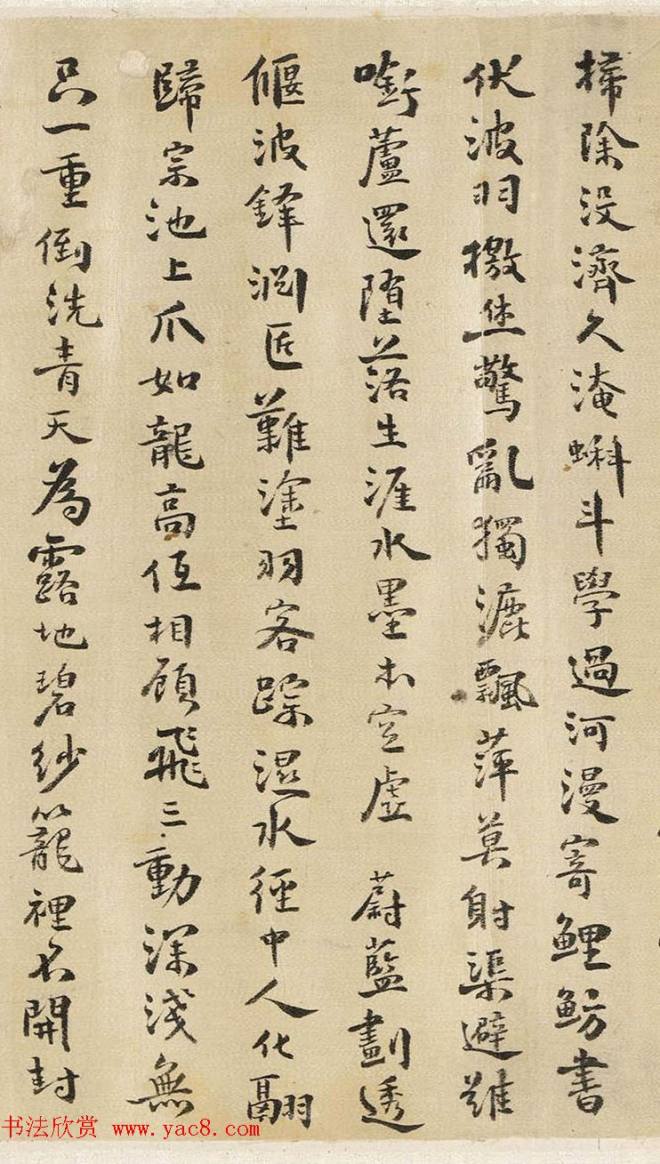 掃除没濟久淹蝌斗學過河漫寄鯉魴書
伏波羽檄坐驚亂獨漉飄萍莫射渠避難
啣蘆還墮落生涯水墨本空虛 蔚藍劃透
偃波鋒涸匠難塗羽客蹤濕水徑中人化翮
歸宗池上爪如龍高低相顧飛三動深淺無
只一重倒洗青天為露地碧紗籠裡不開封
书法欣赏 www.yac8.com